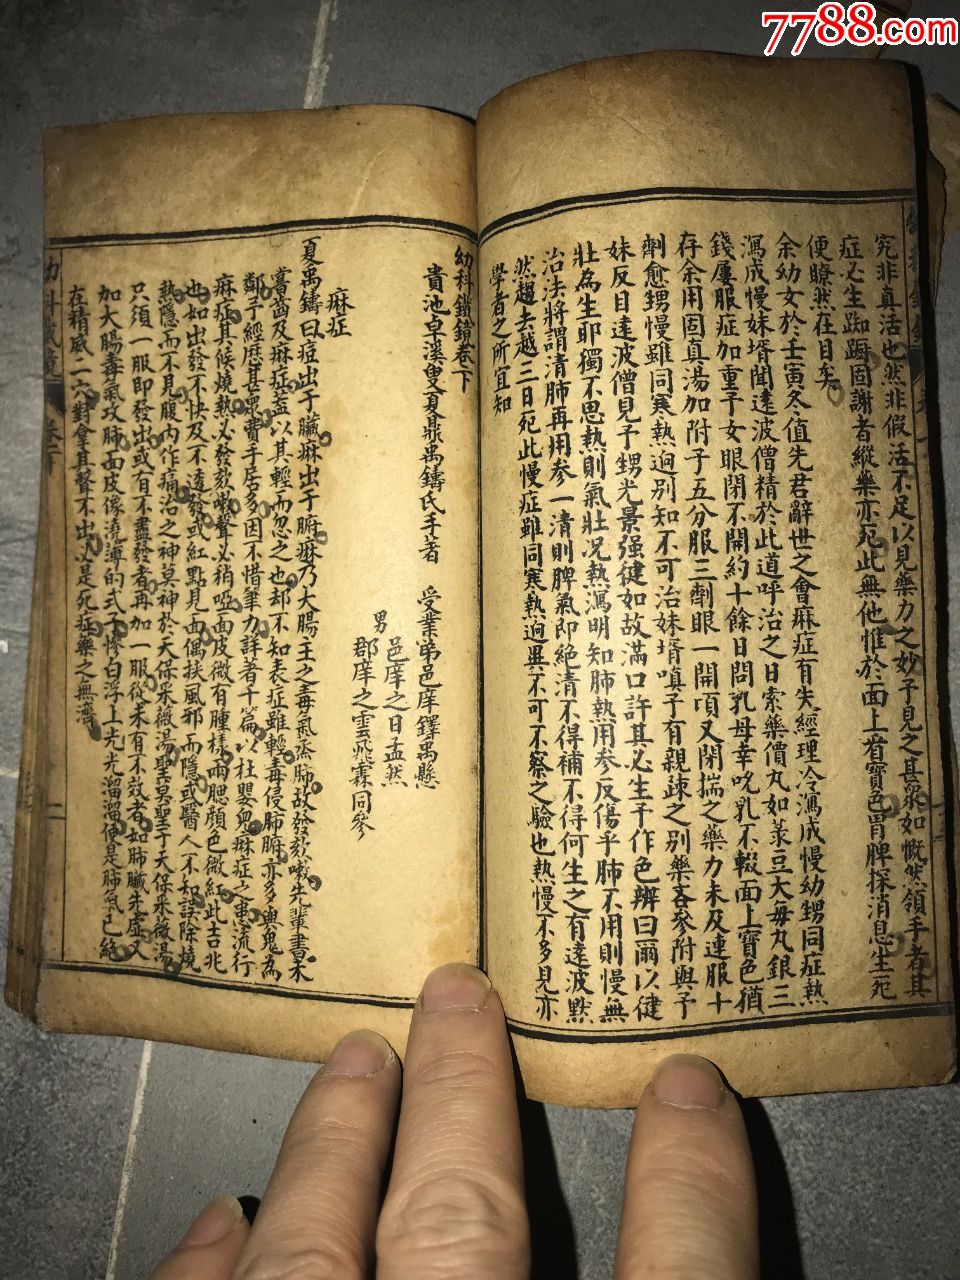 7788.com
究非真活也然非假活不足以見藥力之妙予見之甚衆如慨然領手者其
症必生踟躕固謝者縱藥亦死此無他惟於面上看寶色胃脾探消息生死
便瞭然在目矣
余幼女於壬寅冬値先君辭世之會麻症有失經理冷瀉成慢幼甥同症熱
瀉成慢妹壻聞達波僧精於此道呼治之日索藥價丸如菉豆大每丸銀三
錢屢服症加重予女眼閉不開約十餘日問乳母幸吮乳不輟面上寶色猶
存余用固真湯加附子五分服三劑眼一開頃又閉揣之藥力未及連服十
劑愈甥慢雖同寒熱逈别知不可治妹壻嗔予有親疎之别藥吝參附與予
妹反目達波僧見予甥光景强健如故滿口許其必生予作色辨曰爾以健
壯為生耶獨不思熱則氣壯况熱瀉明知肺熱用參反傷乎肺不用則慢無
治法將謂清肺再用參一清則脾氣即絶清不得補不得何生之有達波默
然趨去越三日死此慢症雖同寒熱逈異不可不察之驗也熱慢不多見亦
學者之所宜知
幼科鐵鏡卷下
貴池卓溪叟夏鼎禹鑄氏手著 受業弟邑庠鐸禹懸
男 邑庠之日孟然
郡庠之雲飛霖同參
麻症
夏禹鑄曰痘出于臟麻出于腑麻乃大腸主之毒氣蒸肺故發欬嗽先輩書未
嘗齒及麻症蓋以其輕而忽之也却不知表症雖輕毒侵肺腑亦多典鬼為
鄰予經歷甚衆費手居多因不惜筆力詳著于篇以杜嬰兒麻症之患流行
麻症其候燒熱必發欬嗽聲必稍啞面皮微有腫様兩腮顔色微紅此吉兆
也如出發不快及不透發或紅點見面偶扶風邪而隱或醫人不知誤除燒
熱隱而不見腹内作痛治之神莫神於天保采薇湯聖莫聖于天保采薇湯
只須一服即發出或有不盡發者再加一服從未有不效者如肺臟先虛又
加大腸毒氣攻肺面皮像澆薄的式子慘白浮上光光溜溜便是肺氣已絶
在精威二穴對拿其聲不出以是死症藥之無濟
幼科鐵鏡 卷下 一